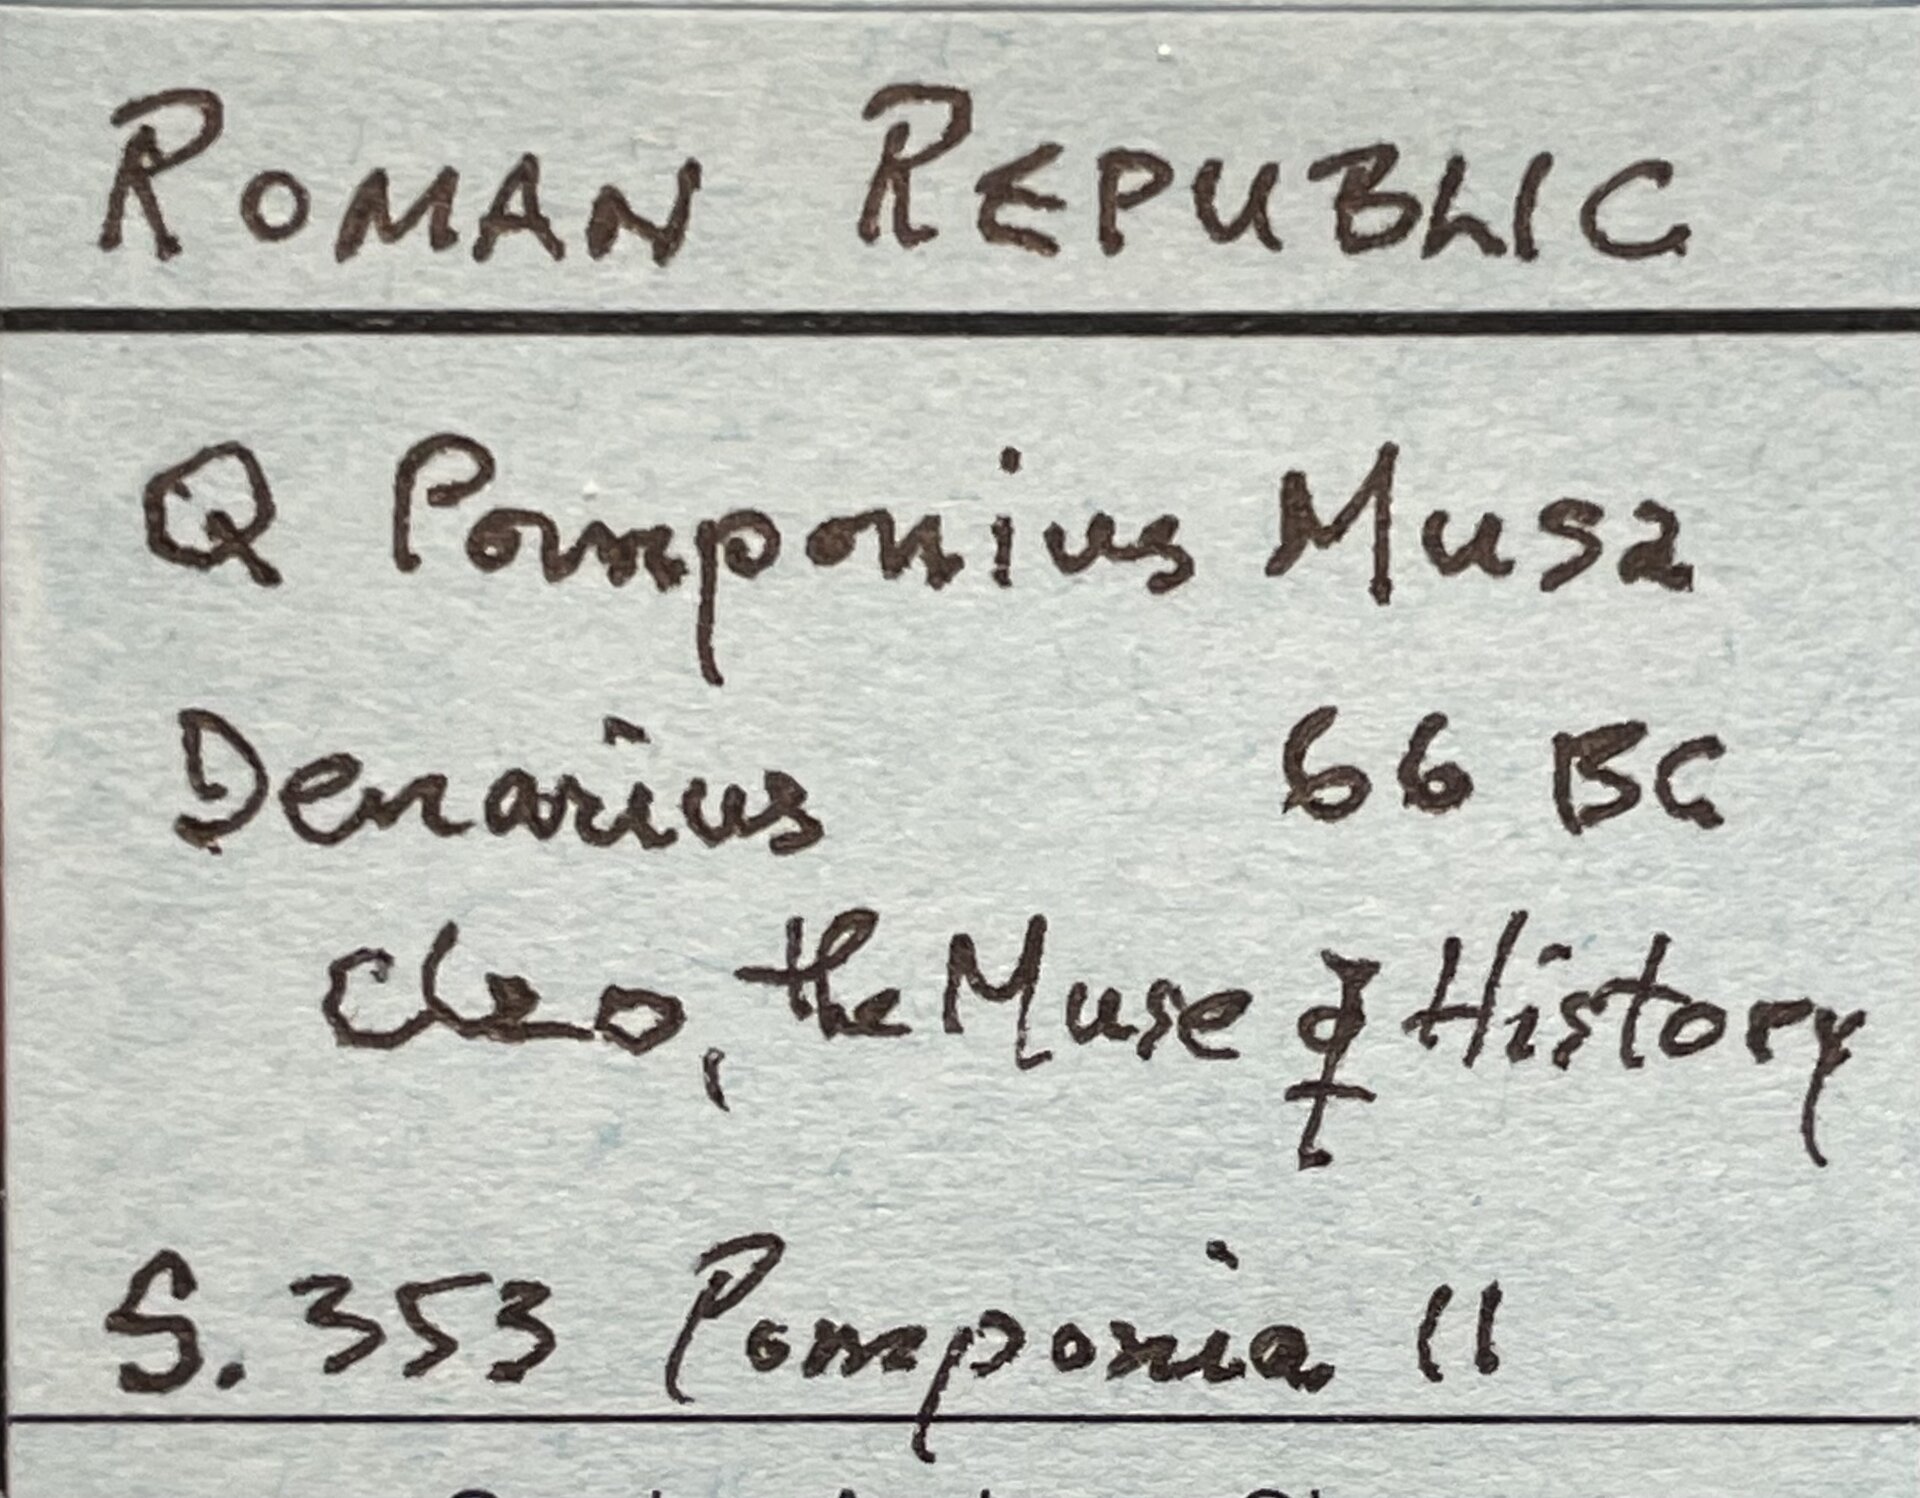 ROMAN REPUBLIC
Q Pomponius Musa
Denarius 66 BC
Cleo, the Muse of History
S. 353 Pomponia 11